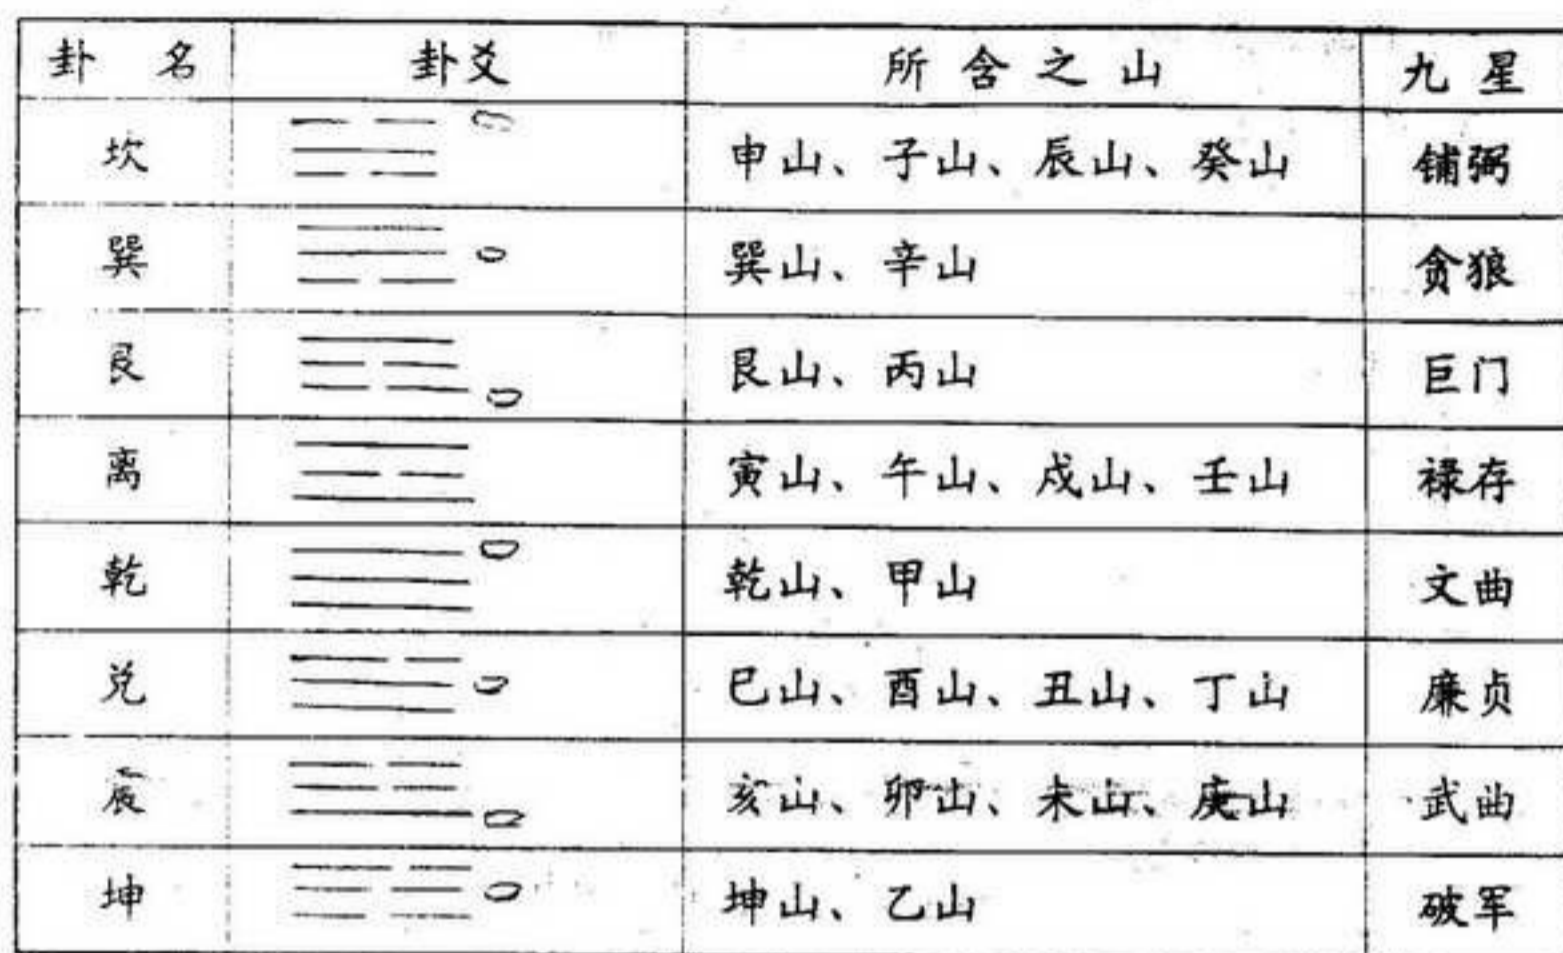 卦 名 卦爻 所含之山 九星
坎 申山、子山、辰山、癸山 铺弼
巽 巽山、辛山 贪狼
艮 艮山、丙山 巨门
离 寅山、午山、戍山、壬山 禄存
乾 乾山、甲山 文曲
兑 巳山、酉山、丑山、丁山 廉贞
辰 亥山、卯山、未山、庚山 武曲
坤 坤山、乙山 破军